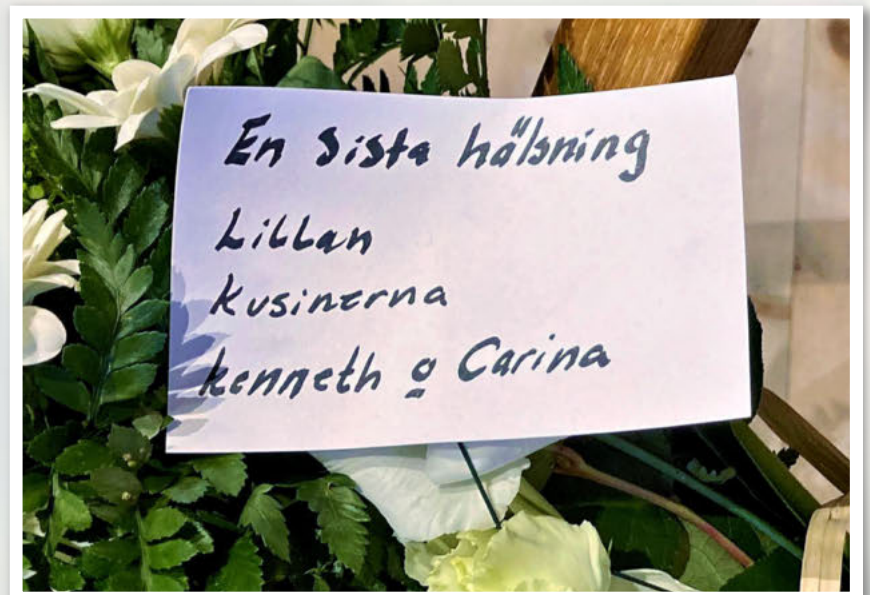 En sista hälsning
Lillan
Kusinerna
Kenneth o Carina